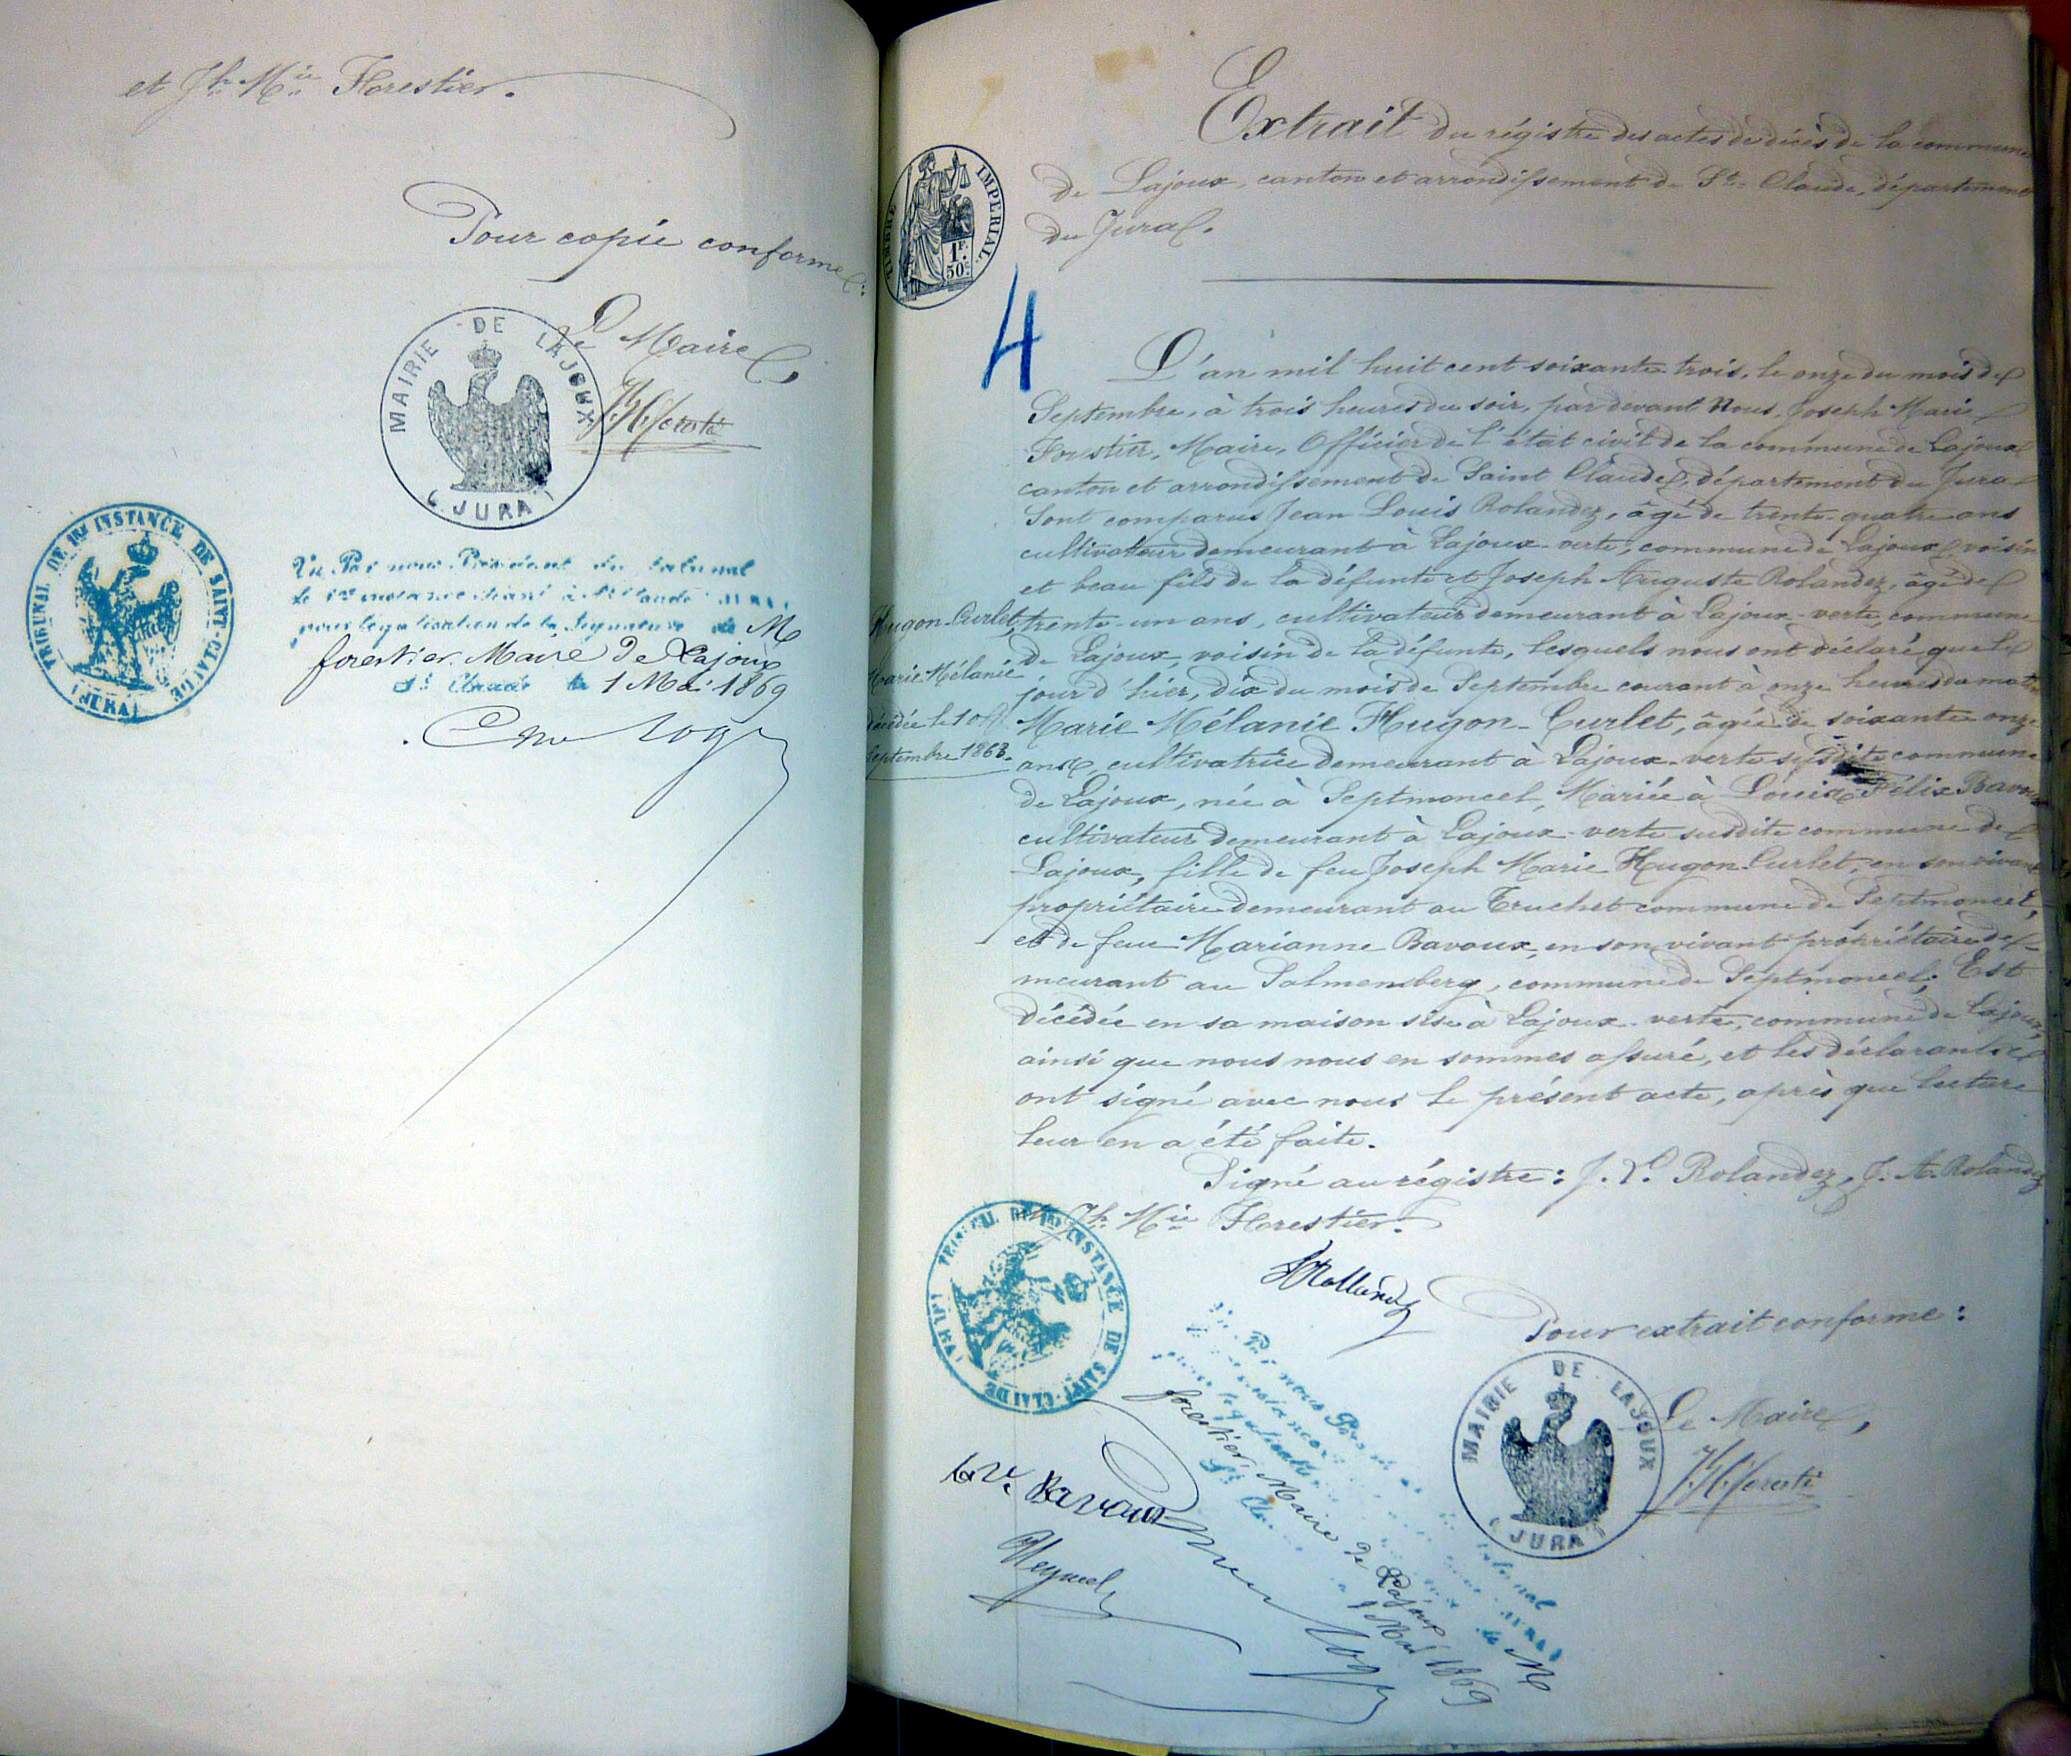 et Jh Mie Forestier.
Pour copie conforme:
Le Maire,
MAIRIE DE LAJOUX
(JURA)
TRIBUNAL DE 1ERE INSTANCE DE SAINT-CLAUDE
(JURA)
Vu Par nous Président du tribunal
de 1re instance séant à St Claude
pour légalisation de la signature de M
forestier Maire de Lajoux
St Claude le 1 Mai 1869
TIMBRE IMPERIAL
1F.
50c
4
Extrait du régistre des actes de décès de la commune
de Lajoux, canton et arrondissement de St Claude, département
du Jura.
L'an mil huit cent soixante trois, le onze du mois de
Septembre, à trois heures du soir, par devant Nous, Joseph Marie
Forestier, Maire, Officier de l'état civil de la commune de Lajoux
canton et arrondissement de Saint Claude, département du Jura
Sont comparus Jean Louis Rolandez, âgé de trente-quatre ans
cultivateur demeurant à Lajoux-verte, commune de Lajoux, voisin
et beau fils de la défunte et Joseph Auguste Rolandez, âgé de
trente-un ans, cultivateur demeurant à Lajoux-verte, commune
de Lajoux, voisin de la défunte, lesquels nous ont déclaré que le
jour d'hier, dix du mois de Septembre courant à onze heures du matin
Marie Mélanie Hugon-Curlet, âgée de soixante onze
ans, cultivatrice demeurant à Lajoux-verte susdite commune
de Lajoux, née à Septmoncel, Mariée à Louis Félix Bavoux
cultivateur demeurant à Lajoux-verte susdite commune de
Lajoux, fille de feu Joseph Marie Hugon-Curlet, en son vivant
propriétaire demeurant au Truchet commune de Septmoncel,
et de feue Marianne Bavoux, en son vivant propriétaire de-
meurant au Salmemberg, commune de Septmoncel; Est
décédée en sa maison sise à Lajoux-verte, commune de Lajoux,
ainsi que nous nous en sommes assuré, et les déclarants
ont signé avec nous le présent acte, après que lecture
leur en a été faite.
Hugon-Curlet,
Marie Mélanie
décédée le 10
Septembre 1863.
Signé au régistre: J. L. Rolandez, J. A. Rolandez
Jh Mie Forestier.
Pour extrait conforme:
Le Maire,
MAIRIE DE LAJOUX
(JURA)
TRIBUNAL DE 1ERE INSTANCE DE SAINT-CLAUDE
(JURA)
Par nous
forestier, Maire de Lajoux
1 Mai 1869
Bavoux